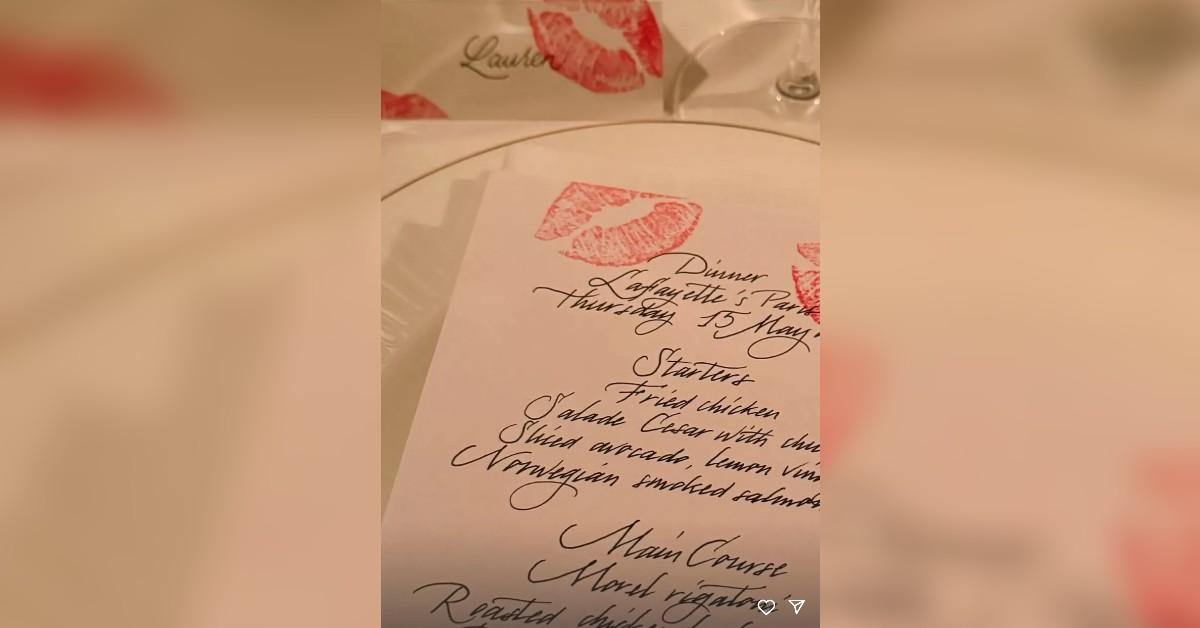 Lauren
Dinner
Lafayette's Paris
Thursday 15 May
Starters
Fried chicken
Salade Cesar with
Sliced avocado, lemon
Norwegian smoked salmon
Main Course
Morel rigatoni
Roasted